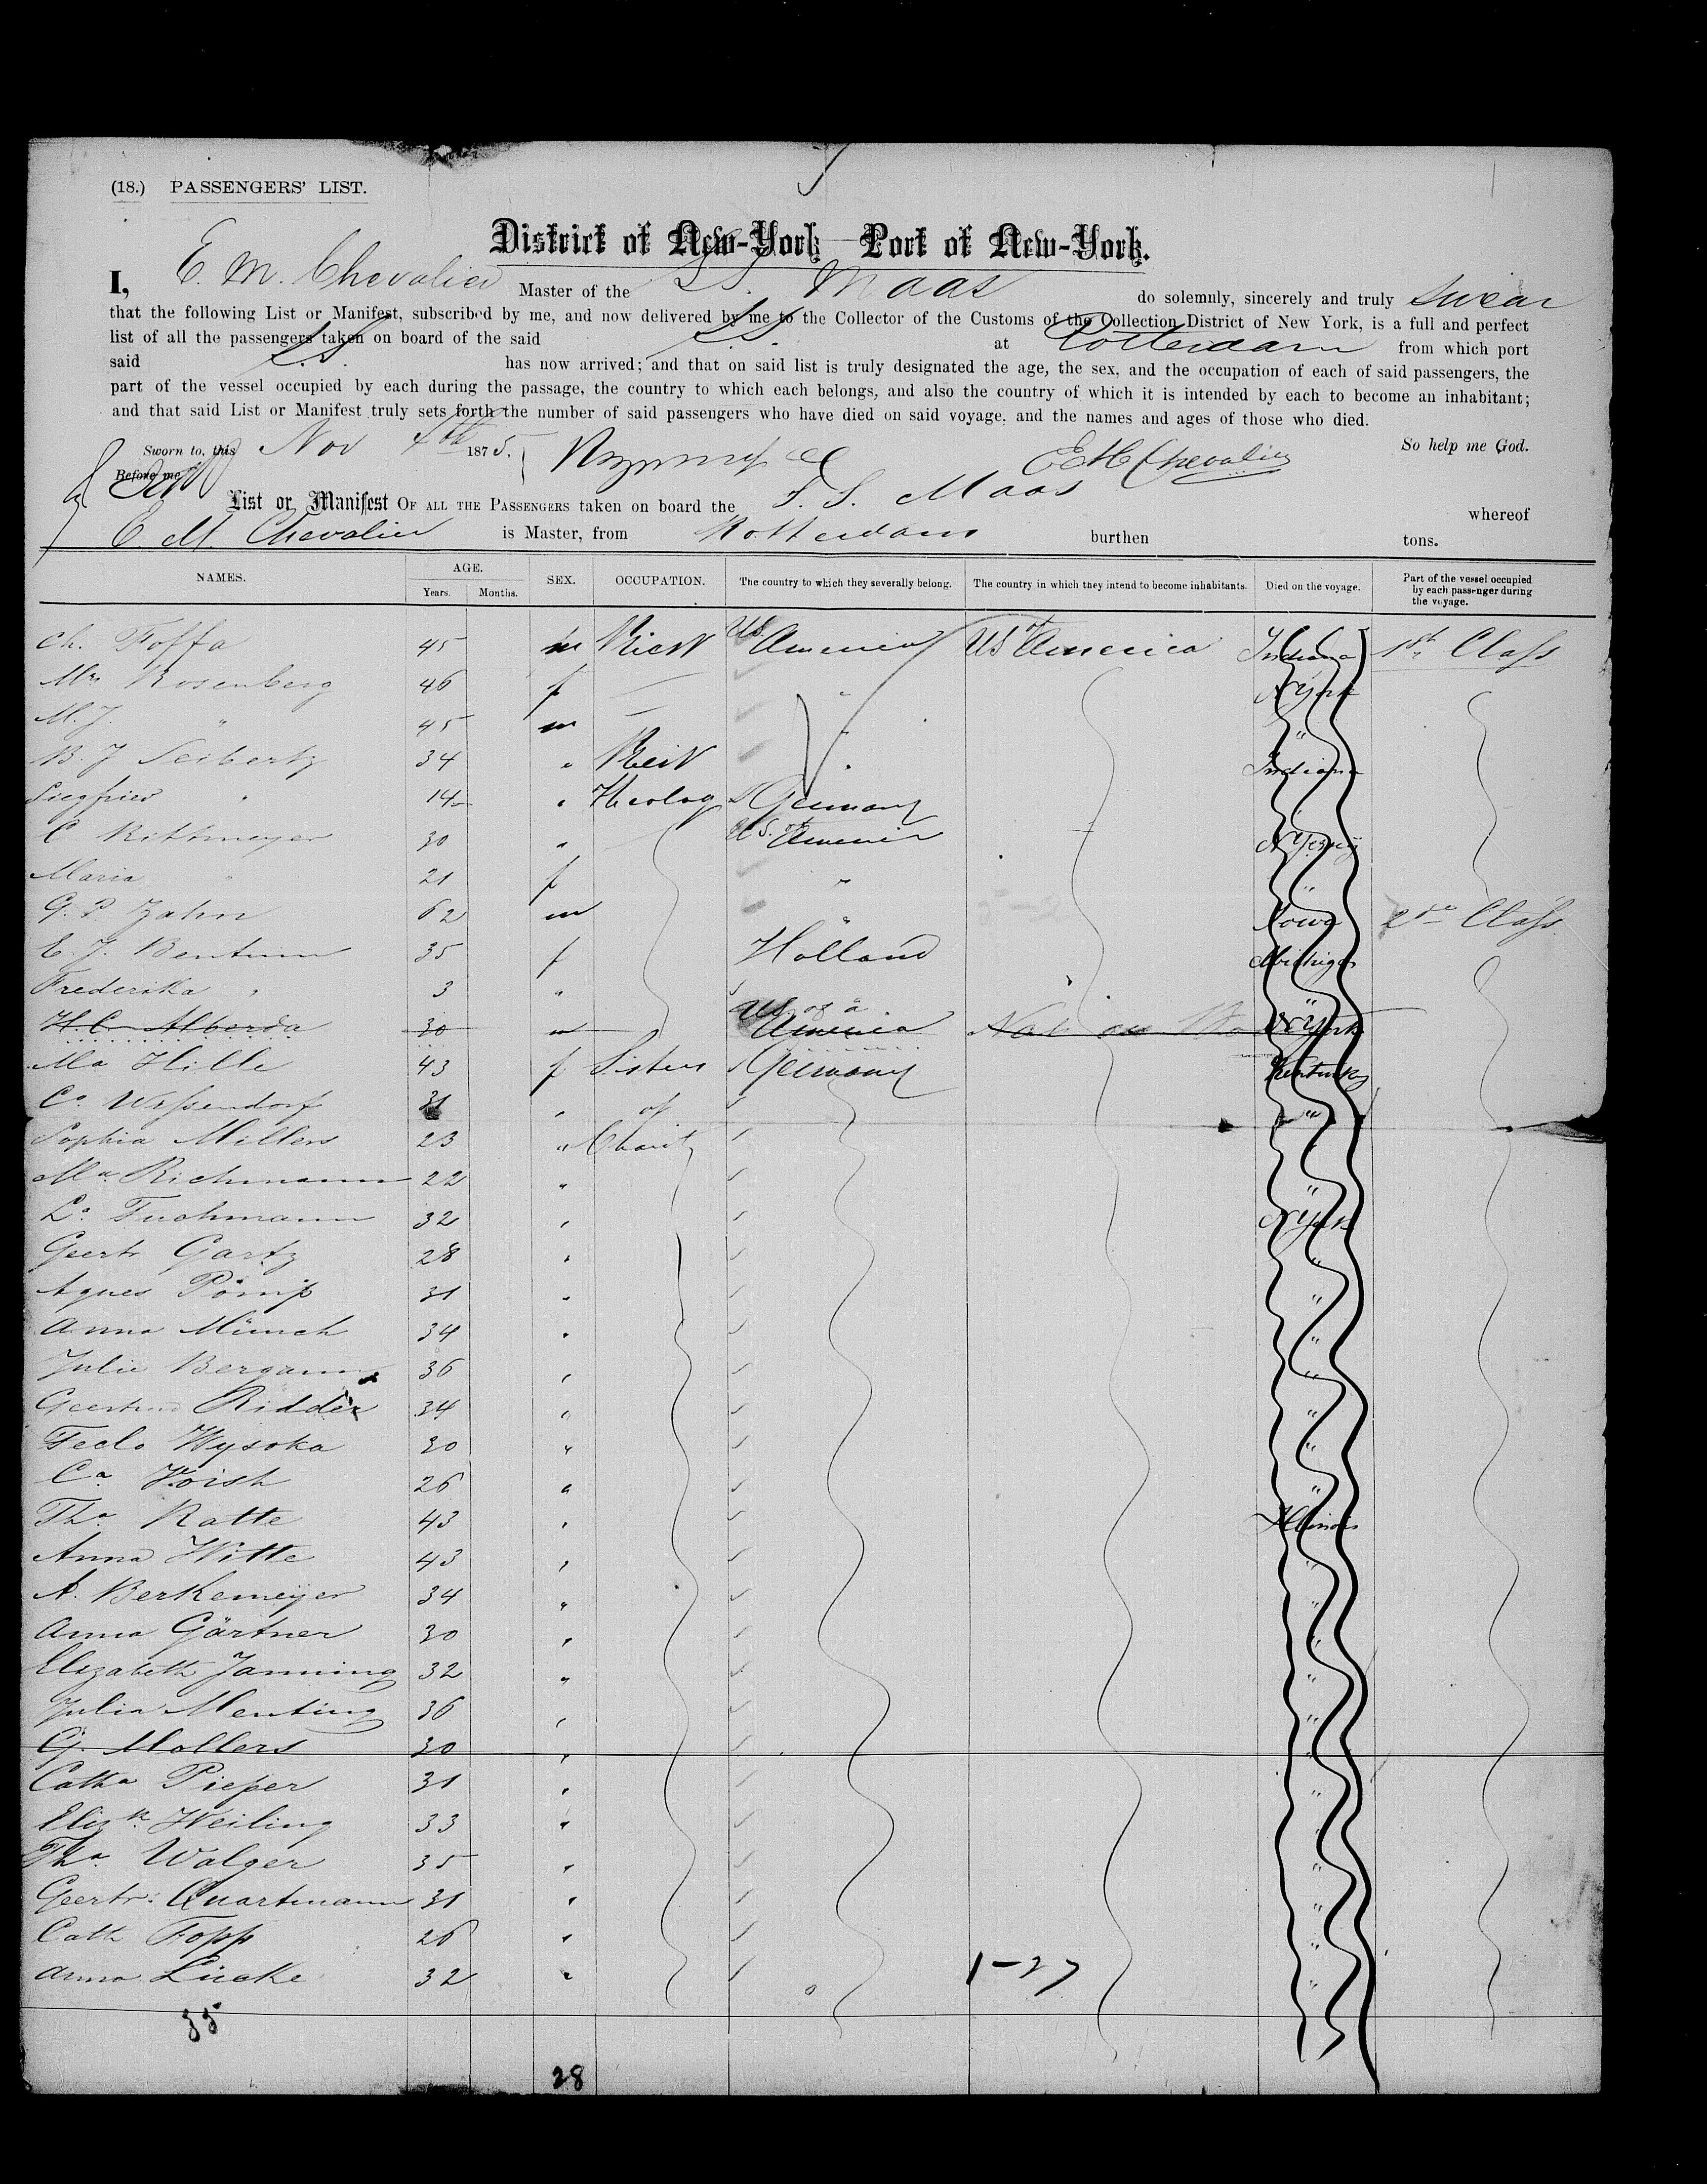 (18.) PASSENGERS' LIST.
District of New-York — Port of New-York.
I, E. M. Chevalier Master of the S.S. Maas do solemnly, sincerely and truly swear
that the following List or Manifest, subscribed by me, and now delivered by me to the Collector of the Customs of the Collection District of New York, is a full and perfect
list of all the passengers taken on board of the said S.S. at Rotterdam from which port
said S.S. has now arrived; and that on said list is truly designated the age, the sex, and the occupation of each of said passengers, the
part of the vessel occupied by each during the passage, the country to which each belongs, and also the country of which it is intended by each to become an inhabitant;
and that said List or Manifest truly sets forth the number of said passengers who have died on said voyage, and the names and ages of those who died.
Sworn to, this Nov 4th 1875. E M Chevalier So help me God.
Before me
List or Manifest OF ALL THE PASSENGERS taken on board the S. S. Maas whereof
E. M. Chevalier is Master, from Rotterdam burthen tons.
NAMES. AGE. Years. Months. SEX. OCCUPATION. The country to which they severally belong. The country in which they intend to become inhabitants. Died on the voyage. Part of the vessel occupied by each passenger during the voyage.
Ch. Foffa 45 m US America US of America Indiana 1st Class
Mrs Rosenberg 46 f — " NYork
M. J. " 45 m — " "
B. J Seibertz 34 " " Indiana
Siegfried " 14 " Theolog Germany
C Rittmeyer 30 " U.S. of America N Jersey
Maria " 21 f " "
G. P. Zahn 62 m " Iowa 2de Class
E. J. Bentum 35 f Holland Michigan
Frederika " 3 " "
H. C. Alberda 30 m US of a America Not on NYork
Ma Hille 43 f Sisters Germany Kentucky
Ca. Wessendorf 31 " of "
Sophia Millers 23 " Charity
Ma. Richmann 22 " "
La. Tuchmann 32 " NYork
Geertr Gartz 28 " "
Agnes Pömp 31 " "
Anna Münch 34 " "
Julie Bergam 36 " "
Geertrud Ridder 34 " "
Tecla Wysoka 30 " "
Ca. Hoish 26 " "
Tha. Ratte 43 " Illinois
Anna Witte 43 " "
A. Berkemeyer 34 " "
Anna Gärtner 30 " "
Elizabeth Janning 32 " "
Julia Menting 36 " "
G. Mollers 30 " "
Catha Pieper 31 " "
Elizth. Weiling 33 " "
Tha. Walger 35 " "
Geertr: Quartmann 31 " "
Cath Fopp 26 " "
Anna Lücke 32 " 1-27 "
35
28